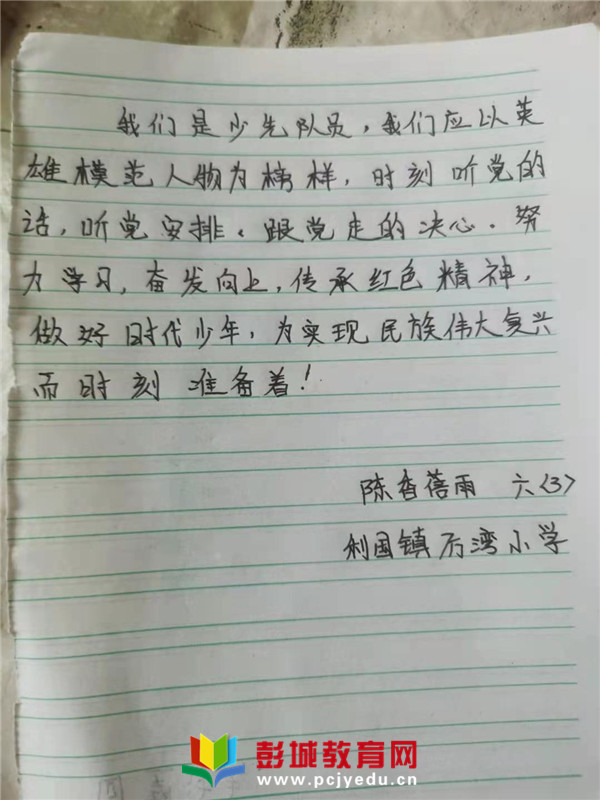 我们是少先队员，我们应以英
雄模范人物为榜样，时刻听党的
话，听党安排、跟党走的决心。努
力学习，奋发向上，传承红色精神，
做好时代少年，为实现民族伟大复兴
而时刻准备着！
陈香蓓雨 六〈3〉
利国镇厉湾小学
彭城教育网
www.pcjyedu.cn